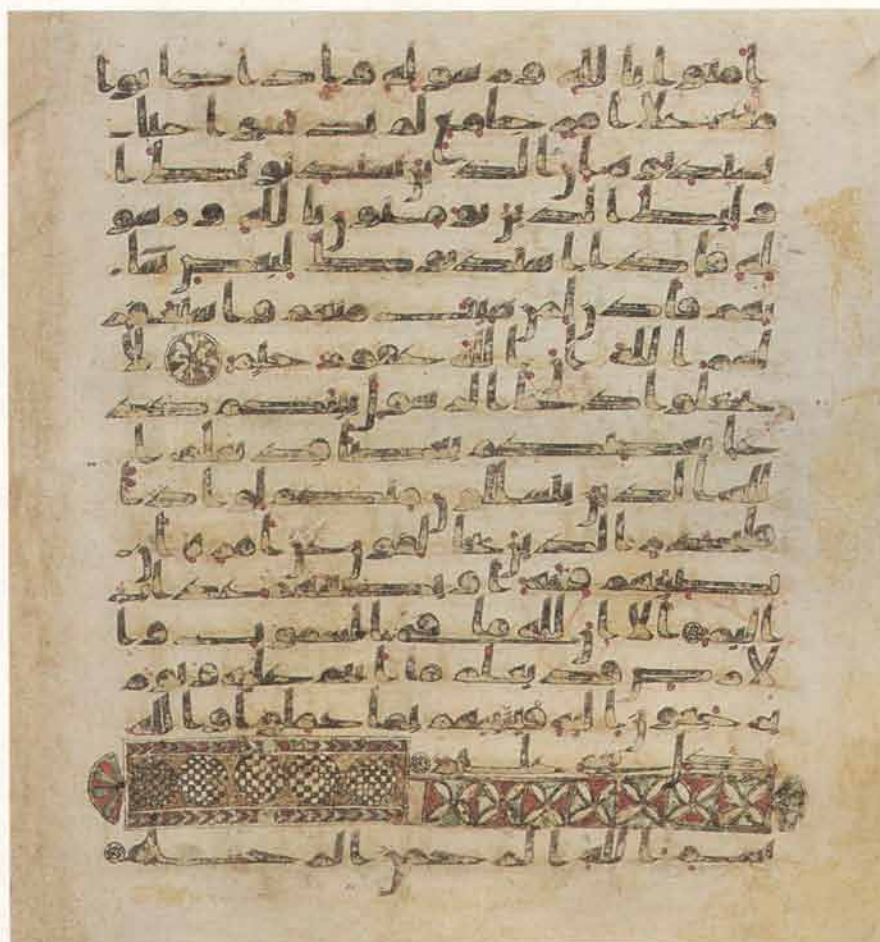 امنوا بالله ورسوله واذا كانوا
معه على امر جامع لم يذهبوا حتى
يستذنوه ان الذين يستذنونك ا
ولئك الذين يومنون بالله ورسو
له فاذا استذنوك لبعض شا
نهم فاذن لمن شئت منهم واستغفر
لهم الله ان الله غفور رحيم لا
تجعلوا دعا الرسول بينكم كد
عا بعضكم بعضا قد يعلم ا
لله الذين يتسللون منكم لواذا
فليحذر الذين يخالفون عن امره ان
تصيبهم فتنة او يصيبهم عذاب
اليم الا ان لله ما في السموت وا
لارض قد يعلم ما انتم عليه ويوم
يرجعون اليه فينبئهم بما عملوا والله
بكل شي عليم
بسم الله الرحمن الرحيم